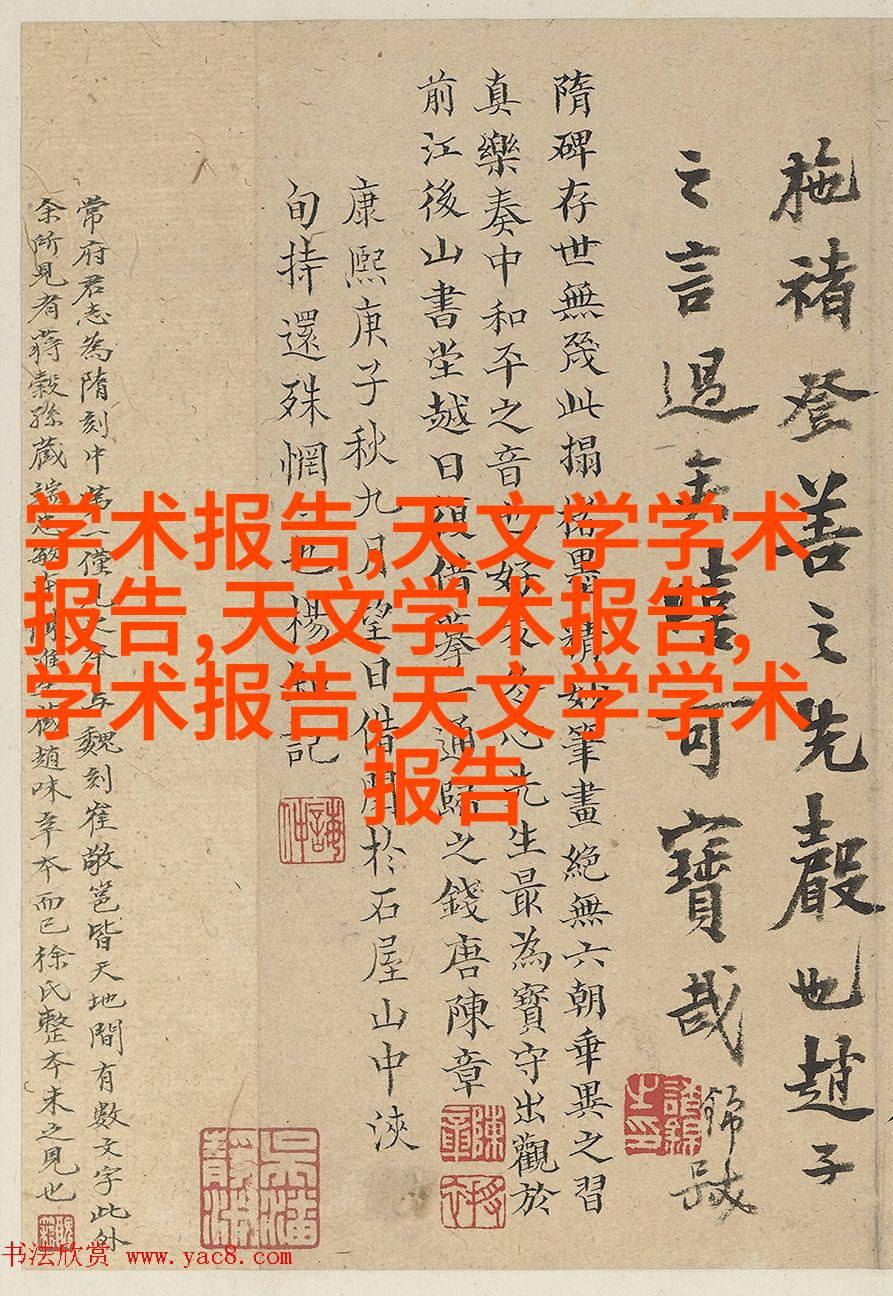 施褚登善之先聲也趙子
之言過
可寶哉 錦
隋碑存世無幾此搨
精妙筆畫絕無六朝垂異之習
真樂奏中和平之音也好
先生最為寶守出觀於
前江後山書堂越日復借摹一通歸之錢唐陳章
康熙庚子秋九月望日借閱於石屋山中浹
旬持還殊惘
也楊
記
常府君志為隋刻中第一僅見之本與魏刻崔敬邕皆天地間有數文字此外
余所見有蔣穀孫藏
趙味辛本而已徐氏整本未之見也
学术报告,天文学学术
报告,天文学术报告,
学术报告,天文学学术
报告
书法欣赏 www.yac8.com